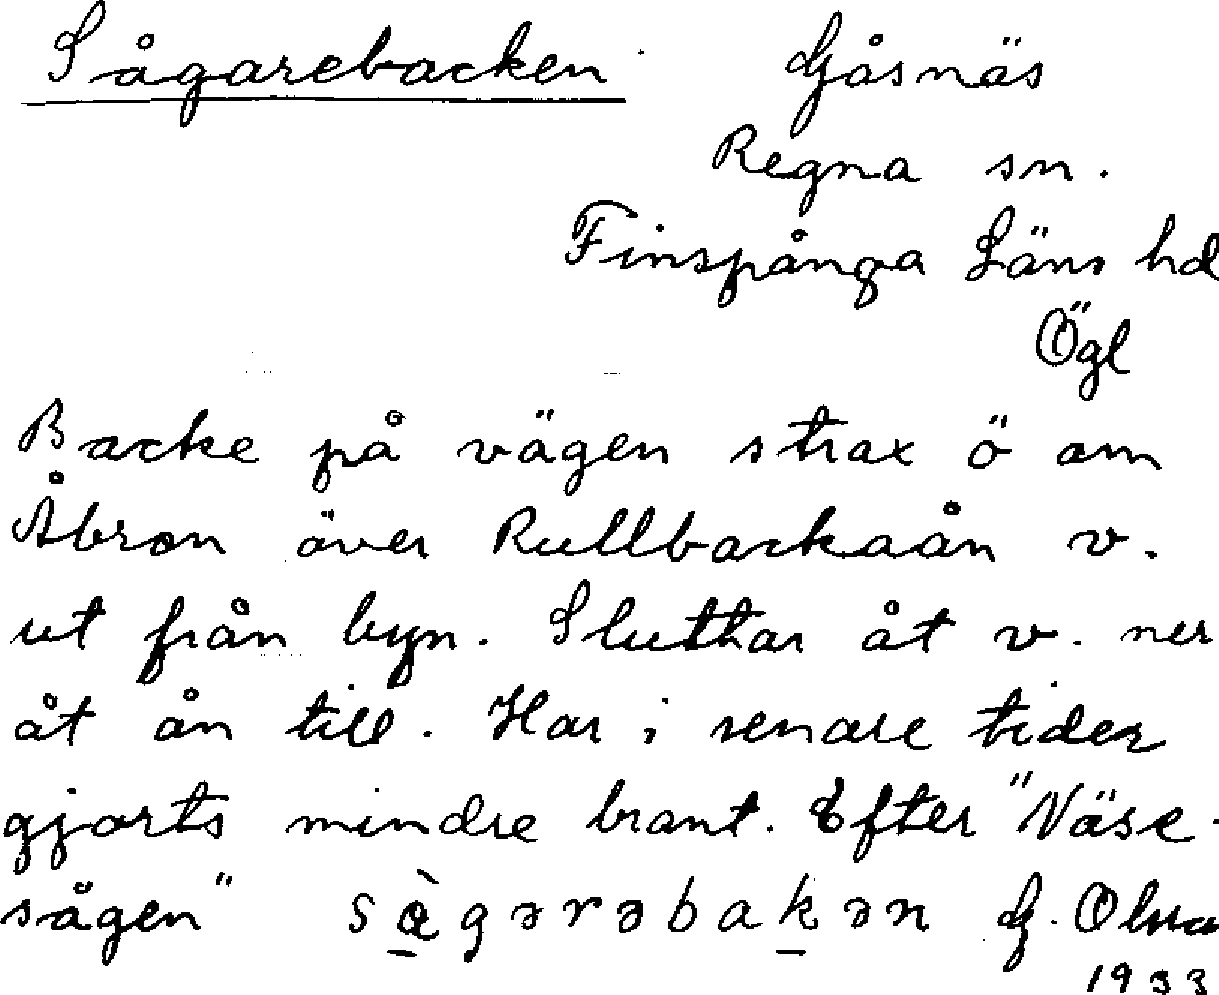 Sågarebacken Gåsnäs
Regna sn.
Finspånga Läns hd
Ögl
Backe på vägen strax ö om
Åbron över Rullbackaån v.
ut från byn. Sluttar åt v. ner
åt ån till. Har i senare tider
gjorts mindre brant. Efter "Näse-
sågen" sɑ̀gərəbakən G.
1933